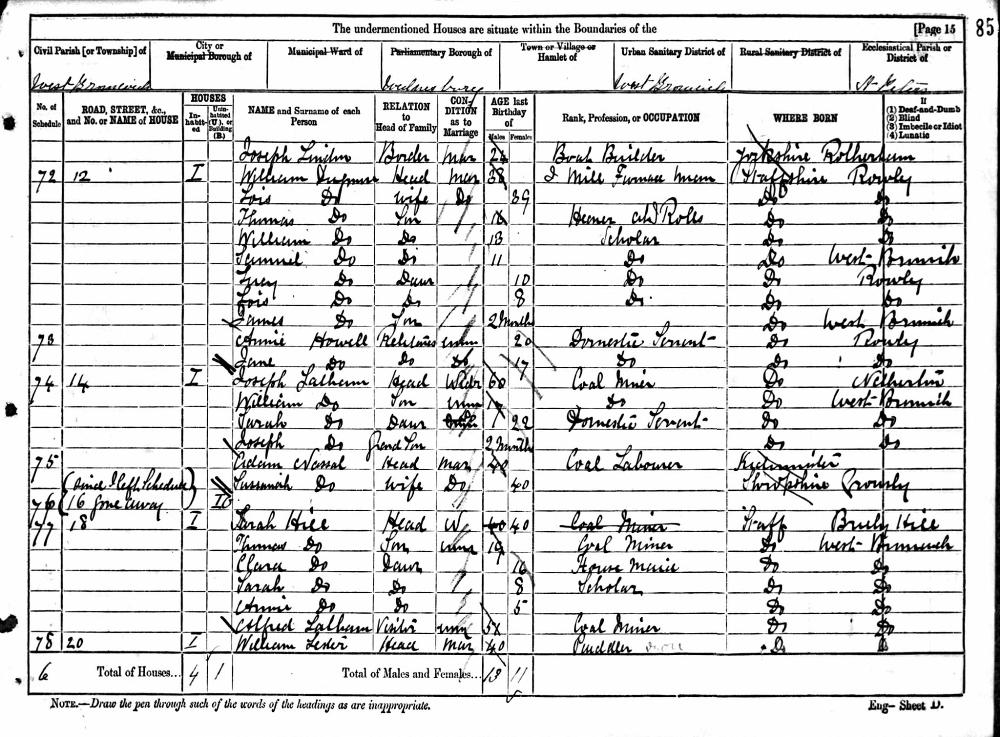 The undermentioned Houses are situate within the Boundaries of the [Page 15 85
Civil Parish [or Township] of City or Municipal Borough of Municipal Ward of Parliamentary Borough of Town or Village or Hamlet of Urban Sanitary District of Rural Sanitary District of Ecclesiastical Parish or District of
West Bromwich Wednesbury West Bromwich St Peters
No. of Schedule ROAD, STREET, &c., and No. or NAME of HOUSE HOUSES Inhabited Uninhabited (U.), or Building (B.) NAME and Surname of each Person RELATION to Head of Family CONDITION as to Marriage AGE last Birthday of Males Females Rank, Profession, or OCCUPATION WHERE BORN If (1) Deaf-and-Dumb (2) Blind (3) Imbecile or Idiot (4) Lunatic
Joseph Border Mar Boat Builder Yorkshire Rotherham
72 12 I William Head Mar 38 I Mill Furnace Man Staffshire Rowley
Lois Do Wife Do 39 Do Do
Thomas Do Son Do Do
William Do Do 13 Scholar Do Do
Samuel Do Do 11 Do Do West Bromich
Lucy Do Daur 10 Do Do Rowley
Lois Do Do 8 Do Do Do
James Do Son 2 Months Do West Bromich
73 Annie Howell unm 20 Domestic Servent Do Rowly
Jane Do Do Do 17 Do Do Do
74 14 I Joseph Latham Head Widr 60 Coal Miner Do Netherton
William Do Son unm Do Do West Bromich
Sarah Do Daur 22 Domestic Servent Do Do
Joseph Do Grand Son 2 Months Do Do
75 Adam Head Mar 40 Coal Labourer
Sussanah Do Wife Do 40 Shropshire
76 16 gone away
77 18 I Sarah Hill Head W 40 40 Coal Miner Staff Brierly Hill
Thomas Do Son unm 19 Coal Miner Do West Bromwich
Clara Do Daur 16 House Maid Do Do
Sarah Do Do 8 Scholar Do Do
Annie Do Do 5 Do Do
Alfred Latham Visitor unm Coal Miner Do Do
78 20 I William Lester Head Mar 40 Puddler Do Do
6 Total of Houses... 4 1 Total of Males and Females... 13 11
NOTE.—Draw the pen through such of the words of the headings as are inappropriate. Eng— Sheet D.